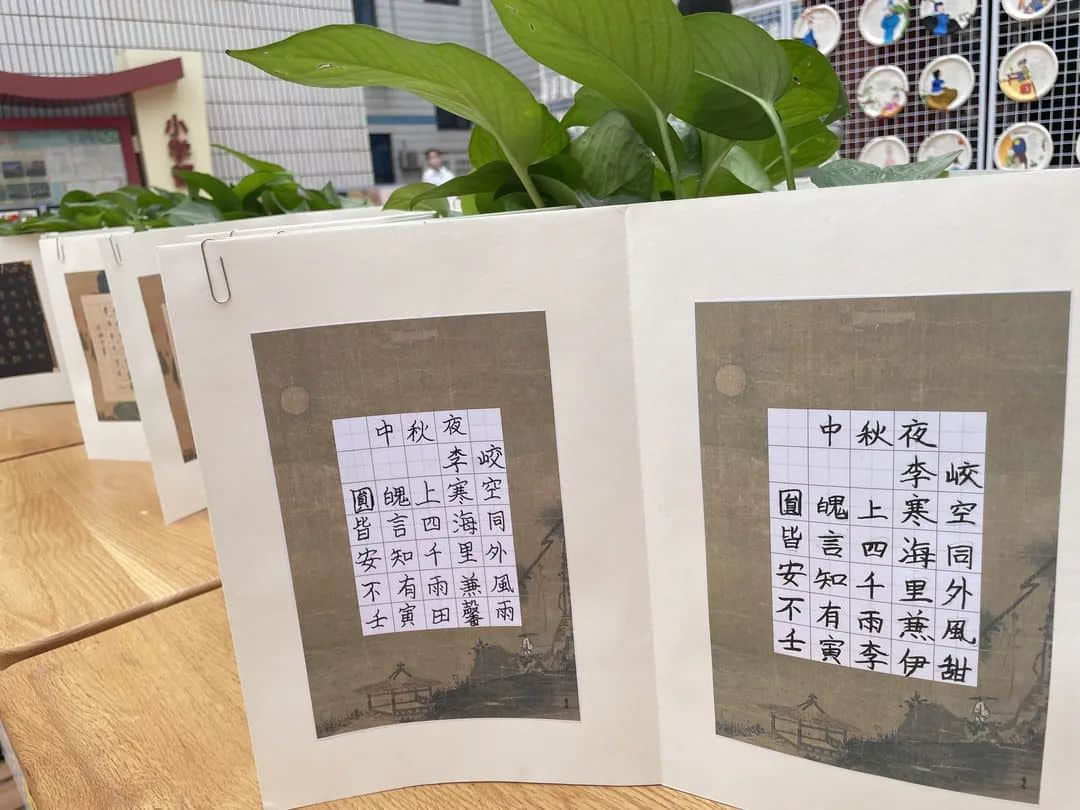 中秋夜
李峧
圓魄上寒空
皆言四海同
安知千里外
不有雨兼風
壬寅田馨雨
中秋夜
李峧
圓魄上寒空
皆言四海同
安知千里外
不有雨兼風
壬寅李伊甜
小